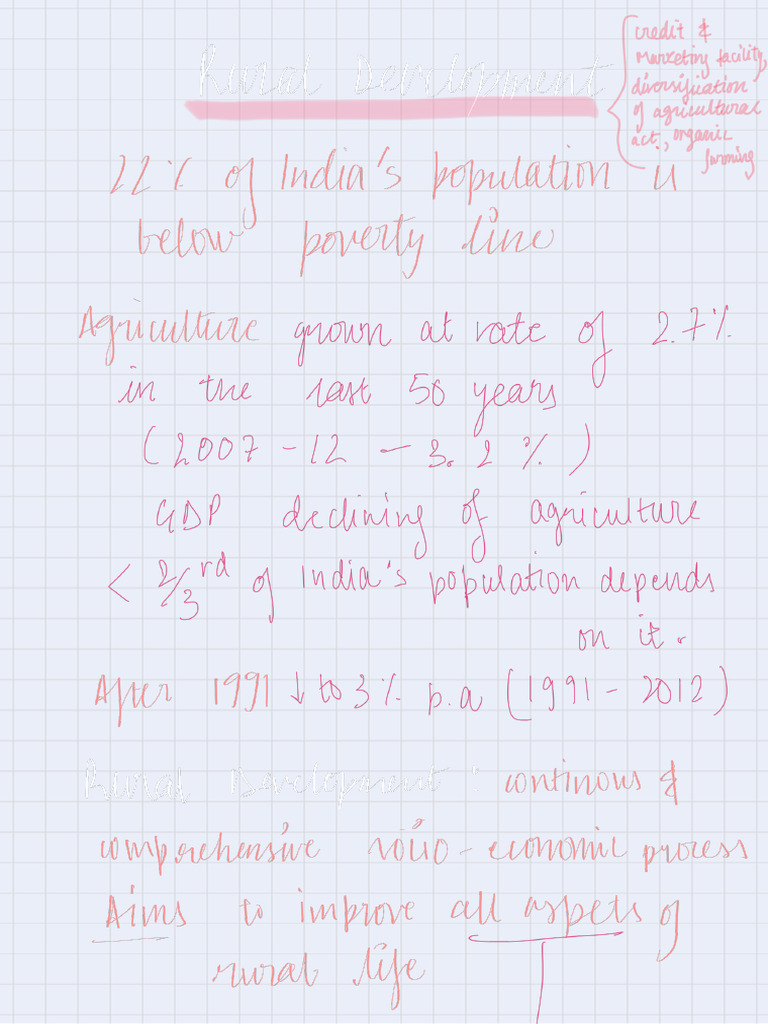 Rural Development
credit &
Marketing facility,
diversification
of agricultural
act., organic
farming
22% of India's population is
below poverty line
Agriculture grown at rate of 2.7%
in the last 50 years
(2007 - 12 - 3.2%)
GDP declining of agriculture
< 2/3rd of India's population depends
on it.
After 1991 ↓ to 3% p.a (1991 - 2012)
Rural Development : continous &
comprehensive socio-economic process
Aims to improve all aspets of
rural life